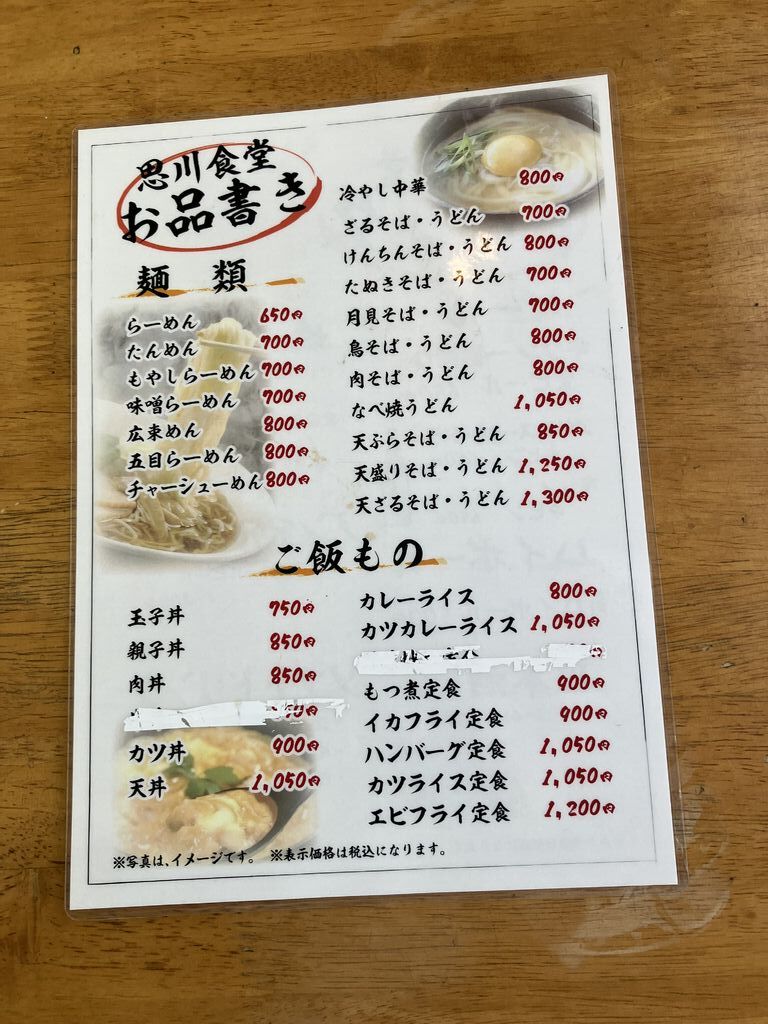 思川食堂
お品書き
麺 類
らーめん 650円
たんめん 700円
もやしらーめん 700円
味噌らーめん 700円
広東めん 800円
五目らーめん 800円
チャーシューめん 800円
冷やし中華 800円
ざるそば・うどん 700円
けんちんそば・うどん 800円
たぬきそば・うどん 700円
月見そば・うどん 700円
鳥そば・うどん 800円
肉そば・うどん 800円
なべ焼うどん 1,050円
天ぷらそば・うどん 850円
天盛りそば・うどん 1,250円
天ざるそば・うどん 1,300円
ご飯もの
玉子丼 750円
親子丼 850円
肉丼 850円
カツ丼 900円
天丼 1,050円
カレーライス 800円
カツカレーライス 1,050円
もつ煮定食 900円
イカフライ定食 900円
ハンバーグ定食 1,050円
カツライス定食 1,050円
エビフライ定食 1,200円
※写真は、イメージです。 ※表示価格は税込になります。